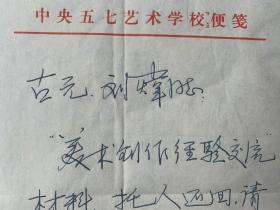 中央五七艺术学校便笺
古元、刘炜同志:
"美术创作经验交流
材料托人还回,请